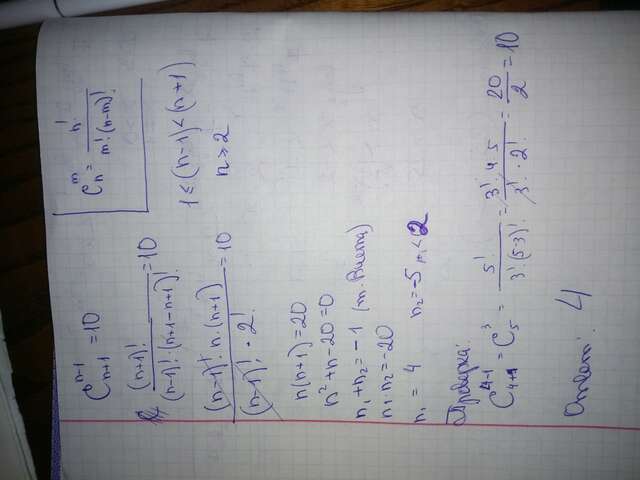 C_{n+1}^{n-1} = 10
C_n^m = n! / m!·(n-m)!
(n+1)! / (n-1)!·(n+1-n+1)! = 10
1 ≤ (n-1) < (n+1)
n ≥ 2
(n-1)!·n·(n+1) / (n-1)!·2! = 10
n(n+1) = 20
n² + n - 20 = 0
n₁ + n₂ = -1 (т. Виета)
n₁·n₂ = -20
n₁ = 4 n₂ = -5 < 2
Проверка:
C_{4+1}^{4-1} = C_5^3 = 5! / 3!·(5-3)! = 3!·4·5 / 3!·2! = 20 / 2 = 10
Ответ: 4